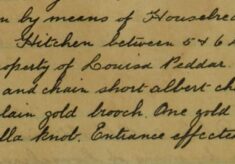 n by means of Housebrea
Hitchen between 5 & 6 
operty of Louisa Peddar.
and chain short albert ch
lain gold brooch. One gold
lla knob. Entrance effecte